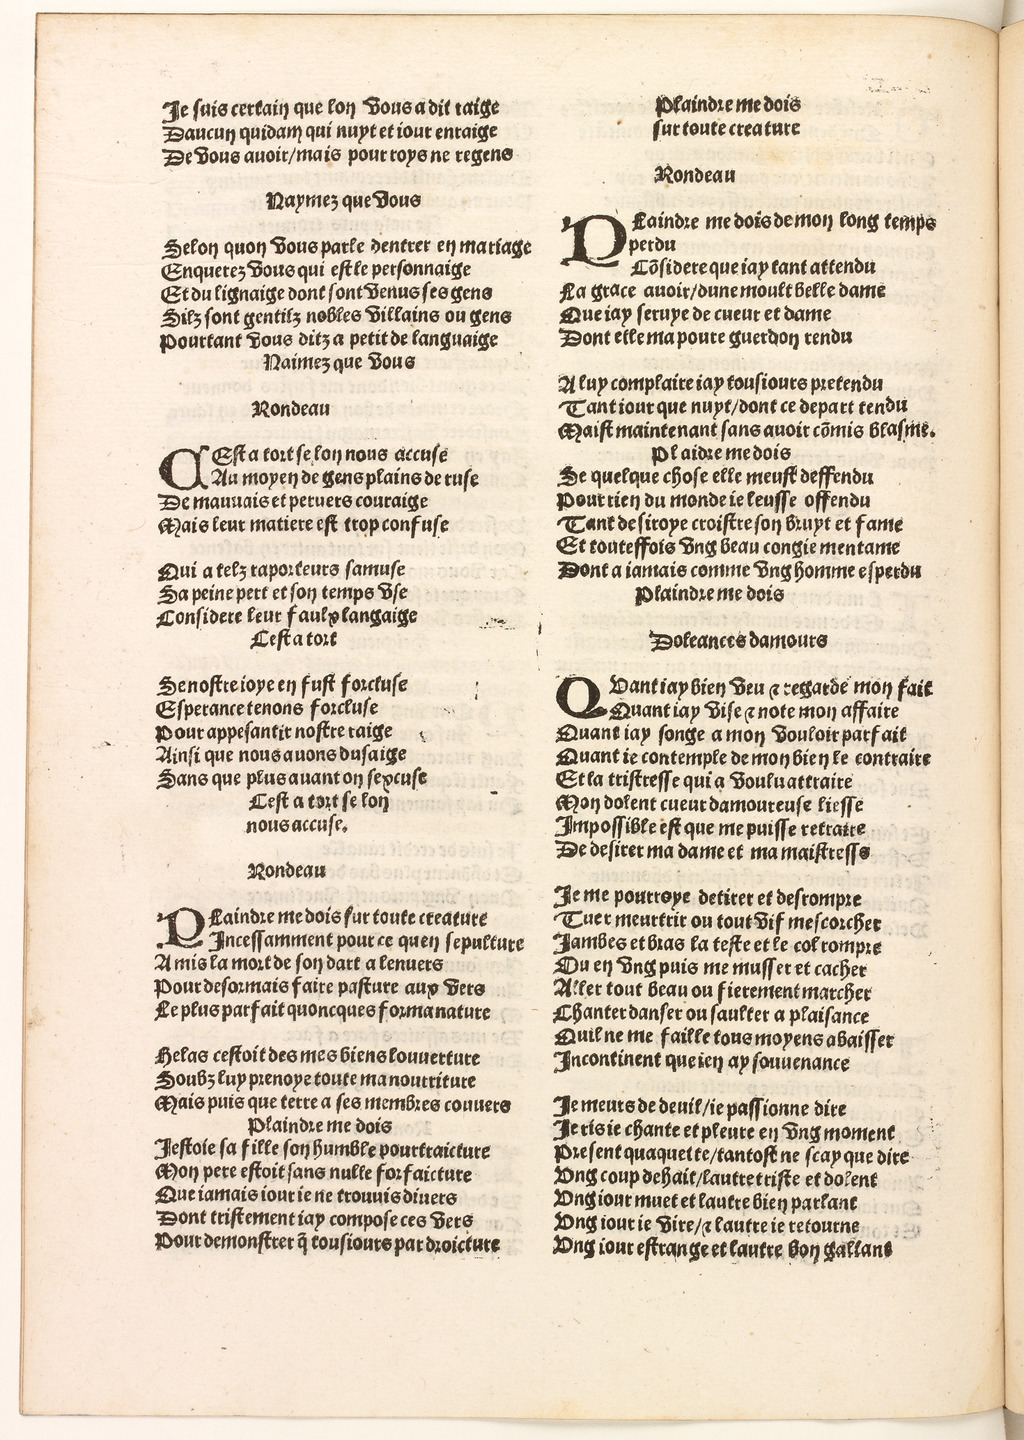 Je suis certain que lon vous a dit raige
Daucun quidam qui nuyt et iour enraige
De vous auoir/mais pour roys ne regens
Naymez que vous
Selon quon vous parle dentrer en mariage
Enquerez vous qui est le personnaige
Et du lignaige dont sont venus ses gens
Silz sont gentilz nobles villains ou gens
Pourtant vous ditz a petit de languaige
Naimez que vous
Rondeau
CEst a tort se lon nous accuse
Au moyen de gens plains de ruse
De mauuais et peruers couraige
Mais leur matiere est trop confuse
Qui a telz raporteurs samuse
Sa peine pert et son temps vse
Considere leur faulx langaige
Cest a tort
Se nostre ioye en fust forcluse
Esperance tenons forcluse
Pour appesantir nostre raige
Ainsi que nous auons dusaige
Sans que plus auant on sexcuse
Cest a tort se lon
nous accuse.
Rondeau
PLaindre me dois sur toute creature
Incessamment pour ce quen sepulture
A mis la mort de son dart a lenuers
Pour desormais faire pasture aux vers
Le plus parfait quoncques forma nature
Helas cestoit des mes biens louuerture
Soubz luy prenoye toute ma nourriture
Mais puis que terre a ses membres couuers
Plaindre me dois
Iestoie sa fille son humble pourtraicture
Mon pere estoit sans nulle forfaicture
Que iamais iour ie ne trouuis diuers
Dont tristement iay compose ces vers
Pour demonstrer q̃ tousiours par droicture
Plaindre me dois
sur toute creature
Rondeau
PLaindre me dois de mon long temps
perdu
Cõsidere que iay tant attendu
La grace auoir/dune moult belle dame
Que iay seruye de cueur et dame
Dont elle ma poure guerdon rendu
A luy complaire iay tousiours pretendu
Tant iour que nuyt/dont ce depart tendu
Maist maintenant sans auoir cõmis blasme.
Plaidre me dois
Se quelque chose elle meust deffendu
Pour rien du monde ie leusse offendu
Tant desiroye croistre son bruyt et fame
Et touteffois vng beau congie mentame
Dont a iamais comme vng homme esperdu
Plaindre me dois
Doleances damours
QVant iay bien veu ⁊ regarde mon fait
Quant iay vise ⁊ note mon affaire
Quant iay songe a mon vouloir parfait
Quant ie contemple de mon bien le contraire
Et la tristresse qui a voulu attraire
Mon dolent cueur damoureuse liesse
Impossible est que me puisse retraire
De desirer ma dame et ma maistresse
Je me pourroye detirer et desrompre
Tuer meurtrir ou tout vif mescorcher
Jambes et bras la teste et le col rompre
Ou en vng puis me musser et cacher
Aller tout beau ou fierement marcher
Chanter danser ou saulter a plaisance
Quil ne me faille tous moyens abaisser
Incontinent que ien ay souuenance
Je meurs de deuil/ie passionne dire
Je ris ie chante et pleure en vng moment
Present quaquette/tantost ne scay que dire
Vng coup dehait/lautre triste et dolent
Vng iour muet et lautre bien parlant
Vng iour ie vire/⁊ lautre ie retourne
Vng iour estrange et lautre bon gallant